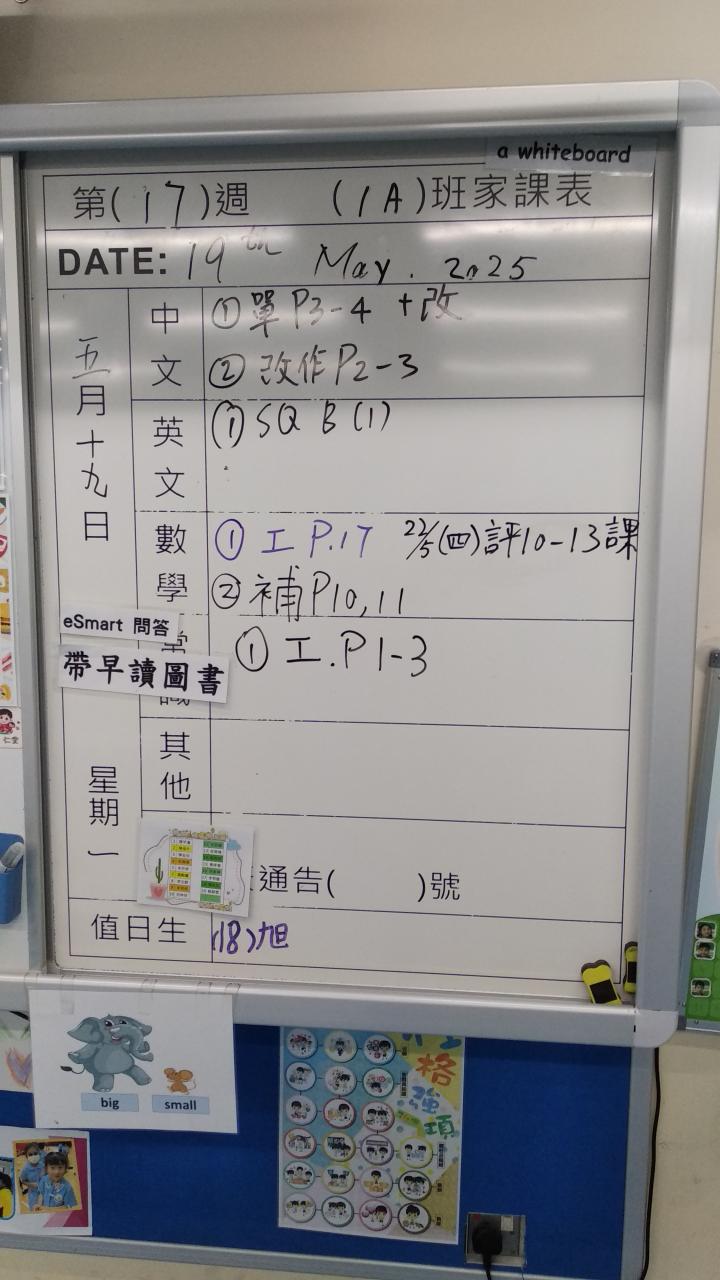 a whiteboard
第(17)週 (1A)班家課表
DATE: 19th May. 2025
五月十九日
中文
① 單P3-4 +改
② 改作P2-3
英文
① SQ B (1)
數學
① 工 P.17 22/5(四)評10-13課
② 補P10,11
eSmart 問答
帶早讀圖書
常識
① 工.P1-3
其他
星期一
通告( )號
值日生
(18)旭
big
small
格
強
項